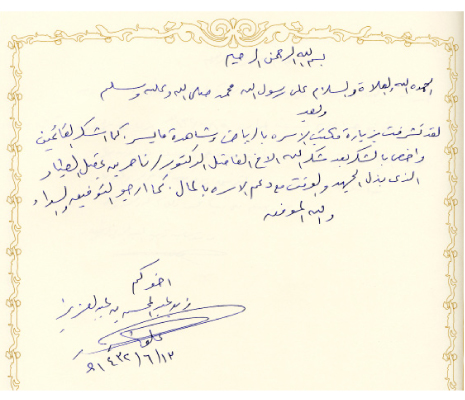 بسم الله الرحمن الرحيم
الحمد لله والصلاة والسلام على رسول الله محمد صلى الله وعليه وسلم
وبعد
لقد تشرفت بزيارة مكتب الاسره بالرياض وشاهدة مايسر كما اشكر القائمين
واخص بالشكر بعد شكر الله الاخ الفاضل الدكتور/ ناصر بن عقيل الطيار
الذي بذل الجهد والوقت مع دعم الاسره بالمال . كما ارجو التوفيق والسداد
والله الموفق
اخوكم
عبدالمحسن بن عبدالعزيز
١٤٣٢/٦/١٣